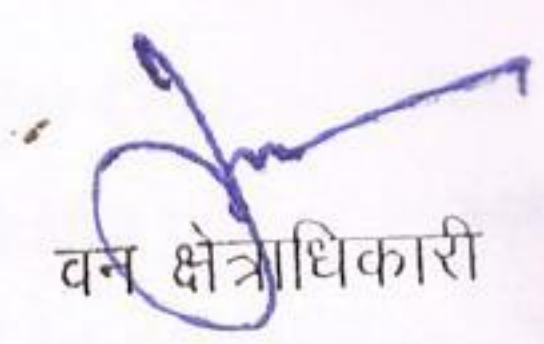 वन क्षेत्राधिकारी